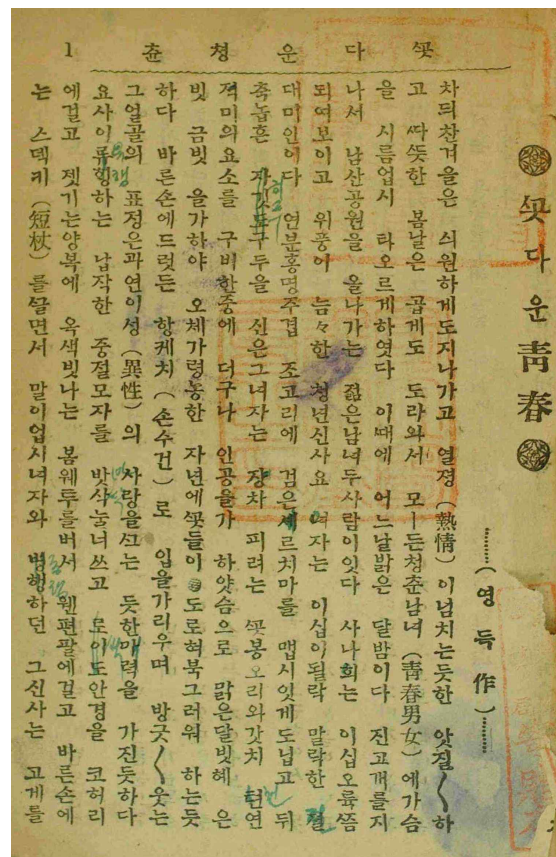 ᄭᅩᆺ다운쳥츈 1
ᄭᅩᆺ다운靑春
………(영득作)………
차듸찬겨을은 싀원하게도지나가고 열졍(熱情)이넘치는듯한 앗질〱하
고 ᄯᅡᄯᅳᆺ한 봄날은 곱게도 도라와서 모ー든쳥춘남녀(靑春男女)에가슴
을 시름업시 타오르게하엿다 이ᄯᅢ에 어느날밝은 달밤이다 진고개를지
나서 남산공원을 올나가는 젊은남녀두사람이잇다 사나희는 이십오륙ᄶᅳᆷ
되여보이고 위풍이 늠々한 쳥년신사요 녀자는 이십이될락 말락한 절
대미인이다 연분홍명주겹 조고리에 검은세르치마를 맵시잇게도닙고 뒤
축놉흔 구두을 신은그녀자는 장차 피려는 ᄭᅩᆺ봉오리와갓치 텬연
적미의요소를 구비한중에 더구나 인공을가 하얏슴으로 맑은달빗헤 은
빗 금빗 을가하야 오체가령농한 자년에ᄭᅩᆺ들이 도로혀북그러워 하는듯
하다 바른손에드럿든 항케치(손수건)로 입을가리우며 방긋〱웃는
그얼골의 표정은과연이성(異性)의 사랑을ᄭᅳ는 듯한매력을 가진듯하다
요사이류행하는 납작한 중절모자를 밧삭눌너쓰고 로이도안경을 코허리
에걸고 젯기는양복에 옥색빗나는 봄웨투를버서 웬편팔에걸고 바른손에
는 스덱키(短杖)를ᄭᅳᆯ면서 말이업시녀자와 병행하던 그신사는 고게를